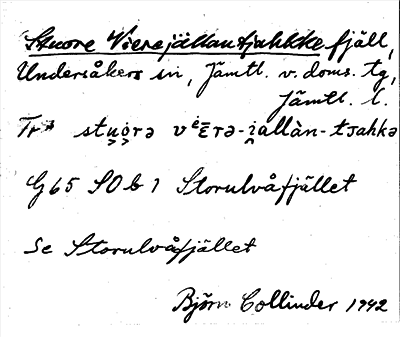 Stuore Vierejällantjahkke fjäll,
Undersåkers sn, Jämtl. v. doms. tg,
Jämtl. l.
Tr. stu̯o̯rə vērə-i̯allàn-tsahkə
G65 SOb 1 Storulvåfjället
Se Storulvåfjället
Björn Collinder 1942